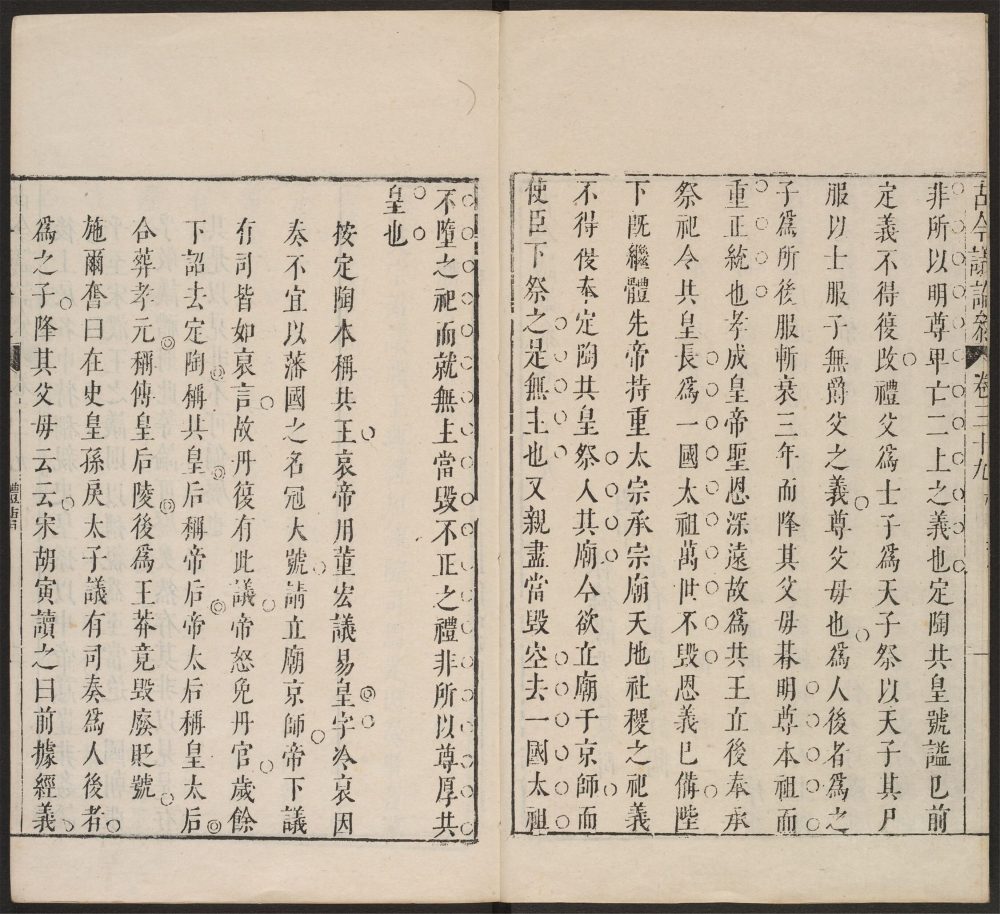 古今議論參 卷三十九
非所以明尊卑亡二上之義也定陶共皇號謚已前
定義不得復改禮父爲士子爲天子祭以天子其尸
服以士服子無爵父之義尊父母也爲人後者爲之
子爲所後服斬衰三年而降其父母朞明尊本祖而
重正統也孝成皇帝聖恩深遠故爲共王立後奉承
祭祀令共皇長爲一國太祖萬世不毀恩義已備陛
下既繼體先帝持重太宗承宗廟天地社稷之祀義
不得復奉定陶共皇祭入其廟今欲立廟于京師而
使臣下祭之是無主也又親盡當毀空去一國太祖
不墮之祀而就無主當毀不正之禮非所以尊厚共
皇也
按定陶本稱共王哀帝用董宏議易皇字冷哀因
奏不宜以藩國之名冠大號請立廟京師帝下議
有司皆如哀言故丹復有此議帝怒免丹官歲餘
下詔去定陶稱共皇后稱帝后帝太后稱皇太后
合葬孝元稱傅皇后陵後爲王莽竟毀廢貶號
施爾奮曰在史皇孫戾太子議有司奏爲人後者
爲之子降其父母云云宋胡寅讀之曰前據經義